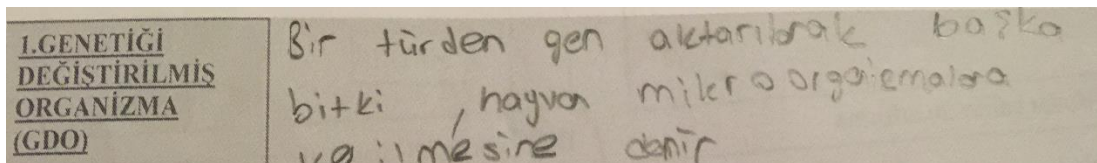 1.GENETİĞİ
DEĞİŞTİRİLMİŞ
ORGANİZMA
(GDO)
Bir türden gen aktarılarak başka
bitki, hayvan mikro
denir